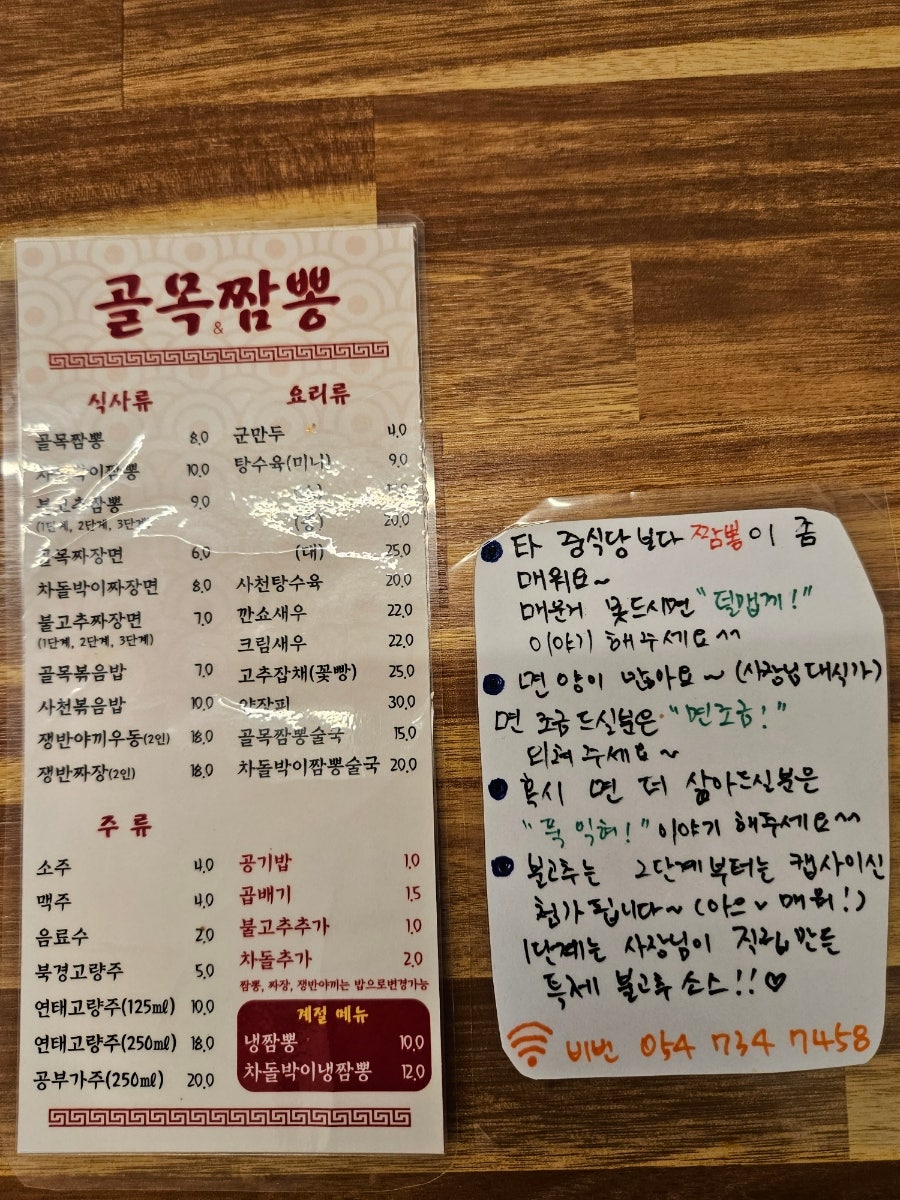 골목&짬뽕
식사류
골목짬뽕 8.0
차돌박이짬뽕 10.0
불고추짬뽕 9.0
(1단계, 2단계, 3단계)
골목짜장면 6.0
차돌박이짜장면 8.0
불고추짜장면 7.0
(1단계, 2단계, 3단계)
골목볶음밥 7.0
사천볶음밥 10.0
쟁반야끼우동(2인) 18.0
쟁반짜장(2인) 18.0
주류
소주 4.0
맥주 4.0
음료수 2.0
북경고량주 5.0
연태고량주(125㎖) 10.0
연태고량주(250㎖) 18.0
공부가주(250㎖) 20.0
요리류
군만두 4.0
탕수육(미니) 9.0
(소)
(중) 20.0
(대) 25.0
사천탕수육 20.0
깐쇼새우 22.0
크림새우 22.0
고추잡채(꽃빵) 25.0
양장피 30.0
골목짬뽕술국 15.0
차돌박이짬뽕술국 20.0
공기밥 1.0
곱배기 1.5
불고추추가 1.0
차돌추가 2.0
짬뽕, 짜장, 쟁반야끼는 밥으로변경가능
계절 메뉴
냉짬뽕 10.0
차돌박이냉짬뽕 12.0
● 타 중식당보다 짬뽕이 좀
매워요~
매운거 못드시면 "덜맵게!"
이야기 해주세요^^
● 면 양이 많아요~ (사장님 대식가)
면 조금 드실분은 "면조금!"
외쳐 주세요~
● 혹시 면 더 삶아드실분은
"푹 익혀!" 이야기 해주세요^^
● 불고추는 2단계부터는 캡사이신
첨가 됩니다~ (아으~ 매워!)
1단계는 사장님이 직접 만든
특제 불고추 소스!! ♡
비번 054 734 7458